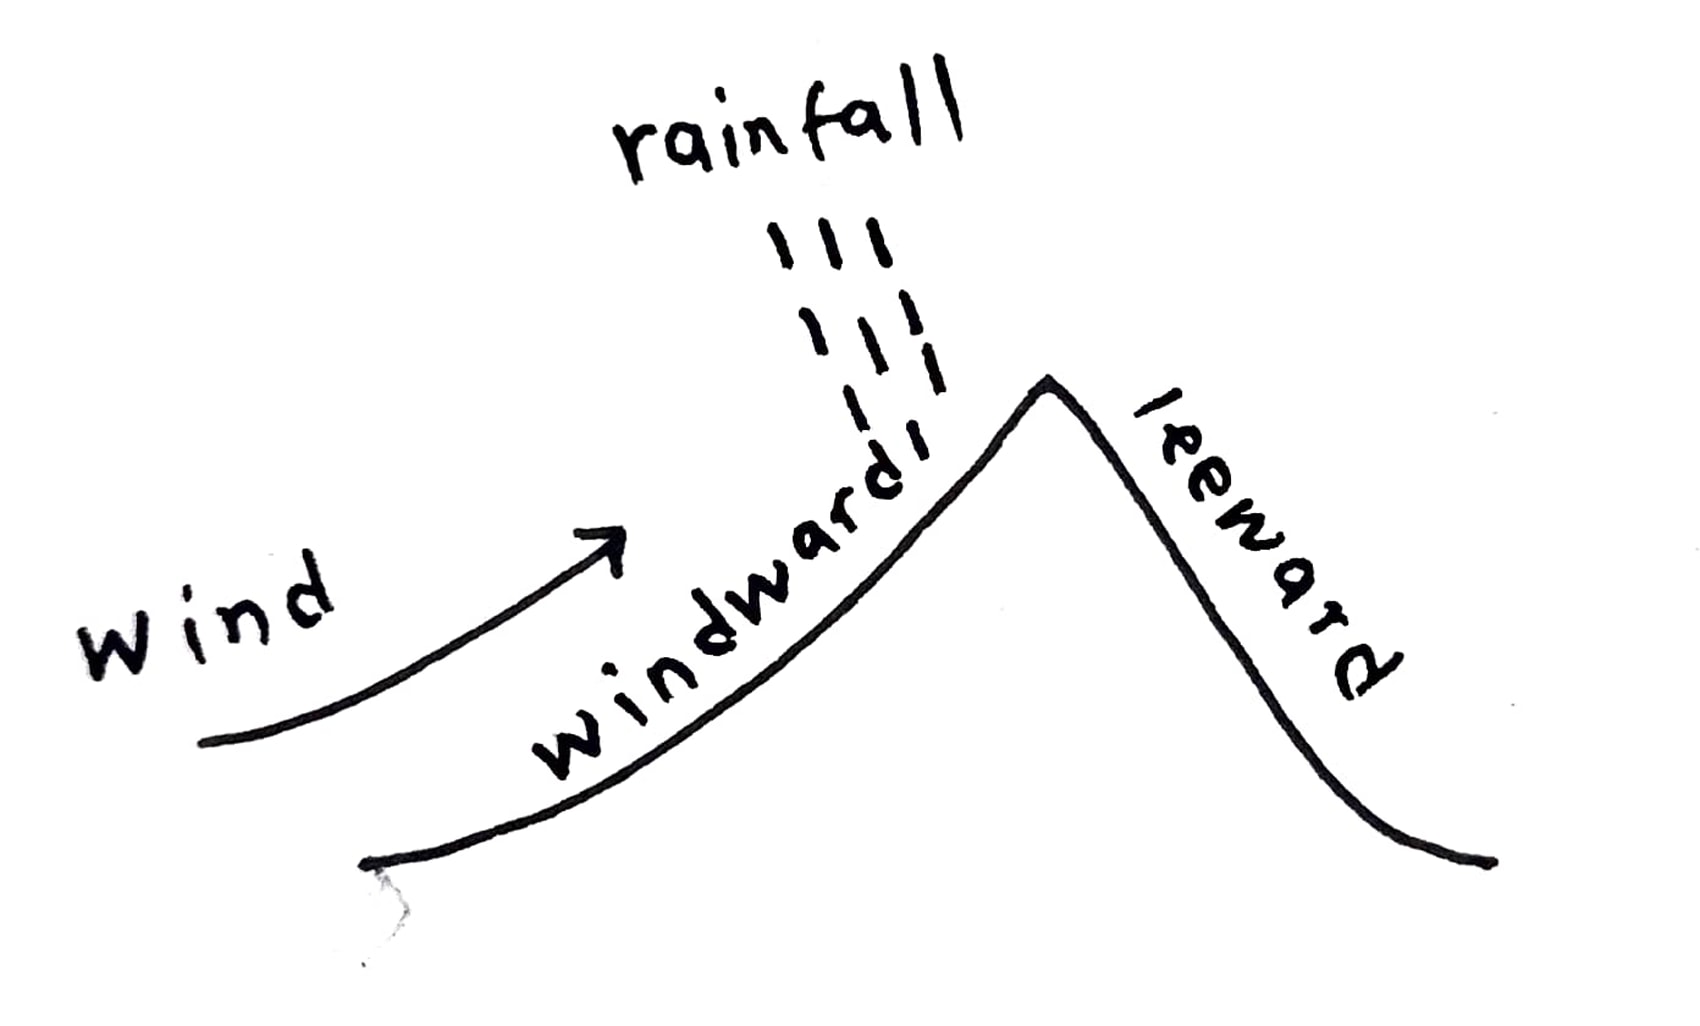 rainfall
wind
windward
leeward